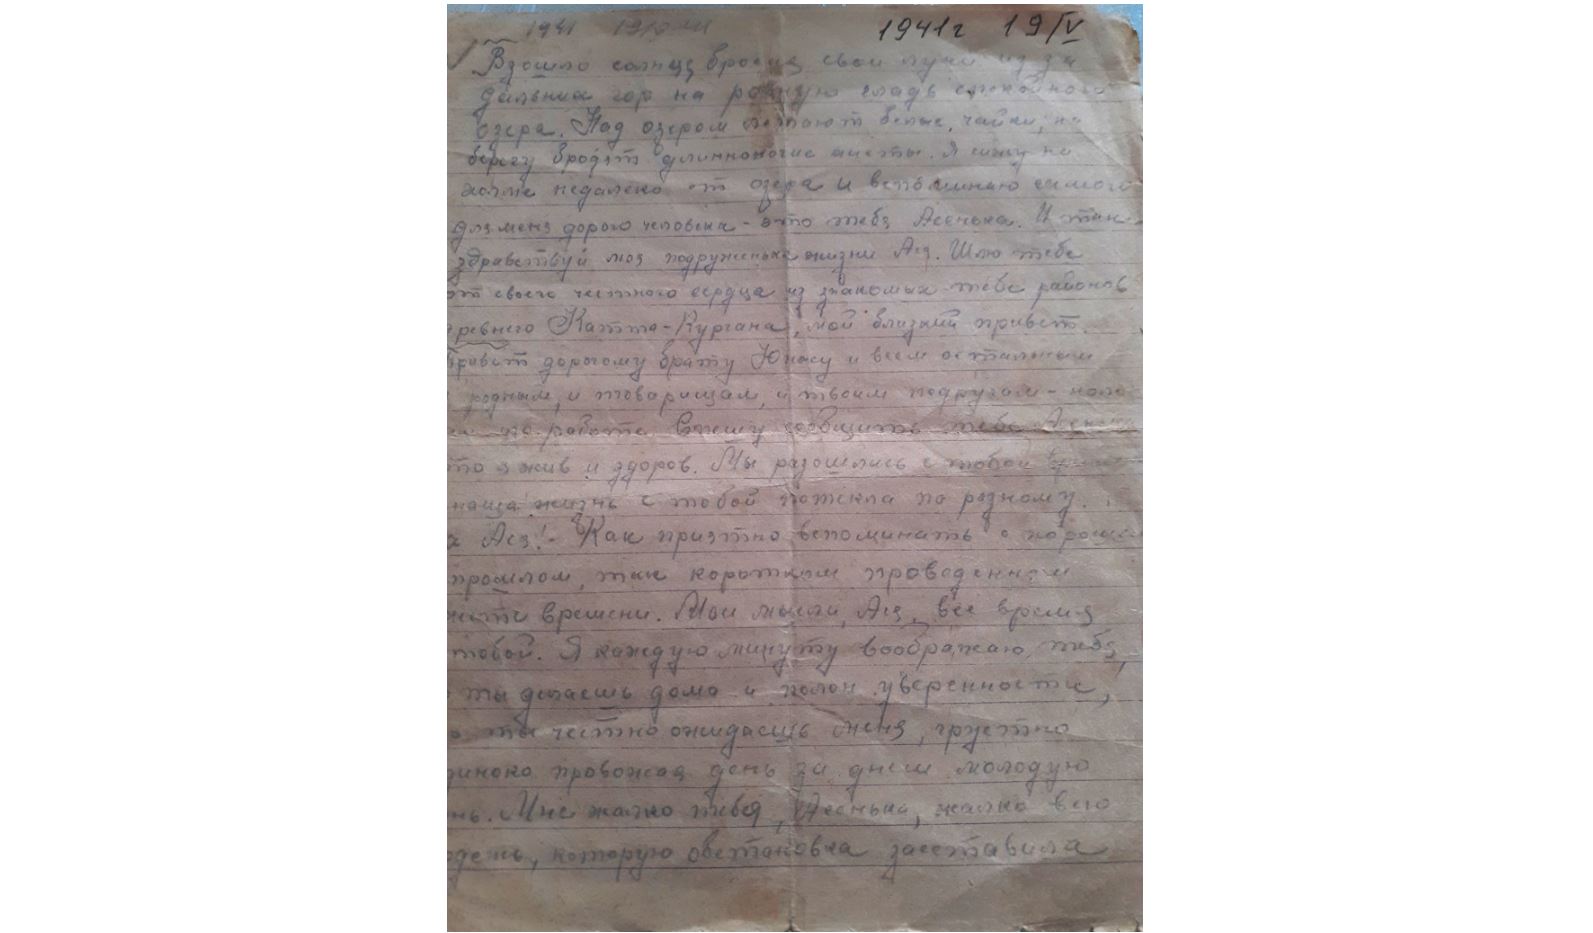 1941 1941г 19/IV
Взошло солнце бросив свои лучи из за
дальних гор на ровную гладь спокойного
озера. Над озером летают белые чайки, на
берегу бродят длинноногие аисты. Я сижу на
холме недалеко от озера и вспоминаю самого
для меня дорого человека - это тебя Асенька. И так
здравствуй моя подруженька жизни Ася. Шлю тебе
от своего честного сердца из знакомых тебе районов
древнего Катта-Кургана, мой близкий привет.
Привет дорогому брату Юнусу и всем остальным
родным, и товарищам, и твоим подругам -
по работе. Спешу сообщить тебе
то я жив и здоров. Мы разошлись с тобой
наша жизнь с тобой потекла по разному.
Ася! - Как приятно вспоминать о
прошлом, так коротким проведенном
времени. Мои мысли, Ася, все время
тобой. Я каждую минуту воображаю тебя,
ты делаешь дома и полон уверенности,
о ты честно ожидаешь меня, грустно
диноко провожая день за днем молодую
нь. Мне жалко тебя, Асенька, жалко всю
одежь, которую обстановка заставила